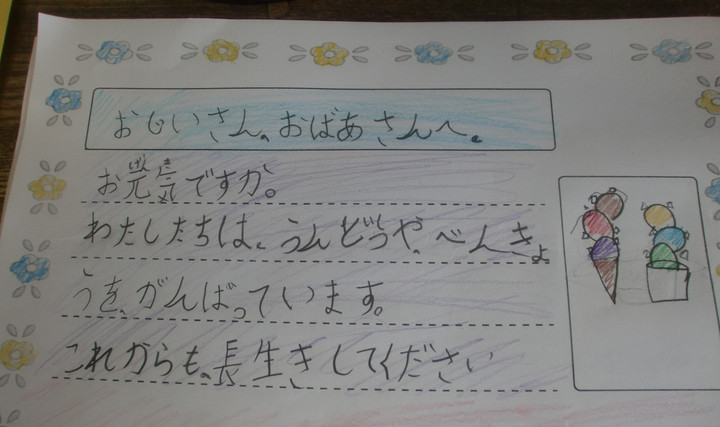 おじいさん、おばあさんへ。
お元気ですか。
わたしたちは、うんどうや、べんきょ
うを、がんばっています。
これからも、長生きしてください